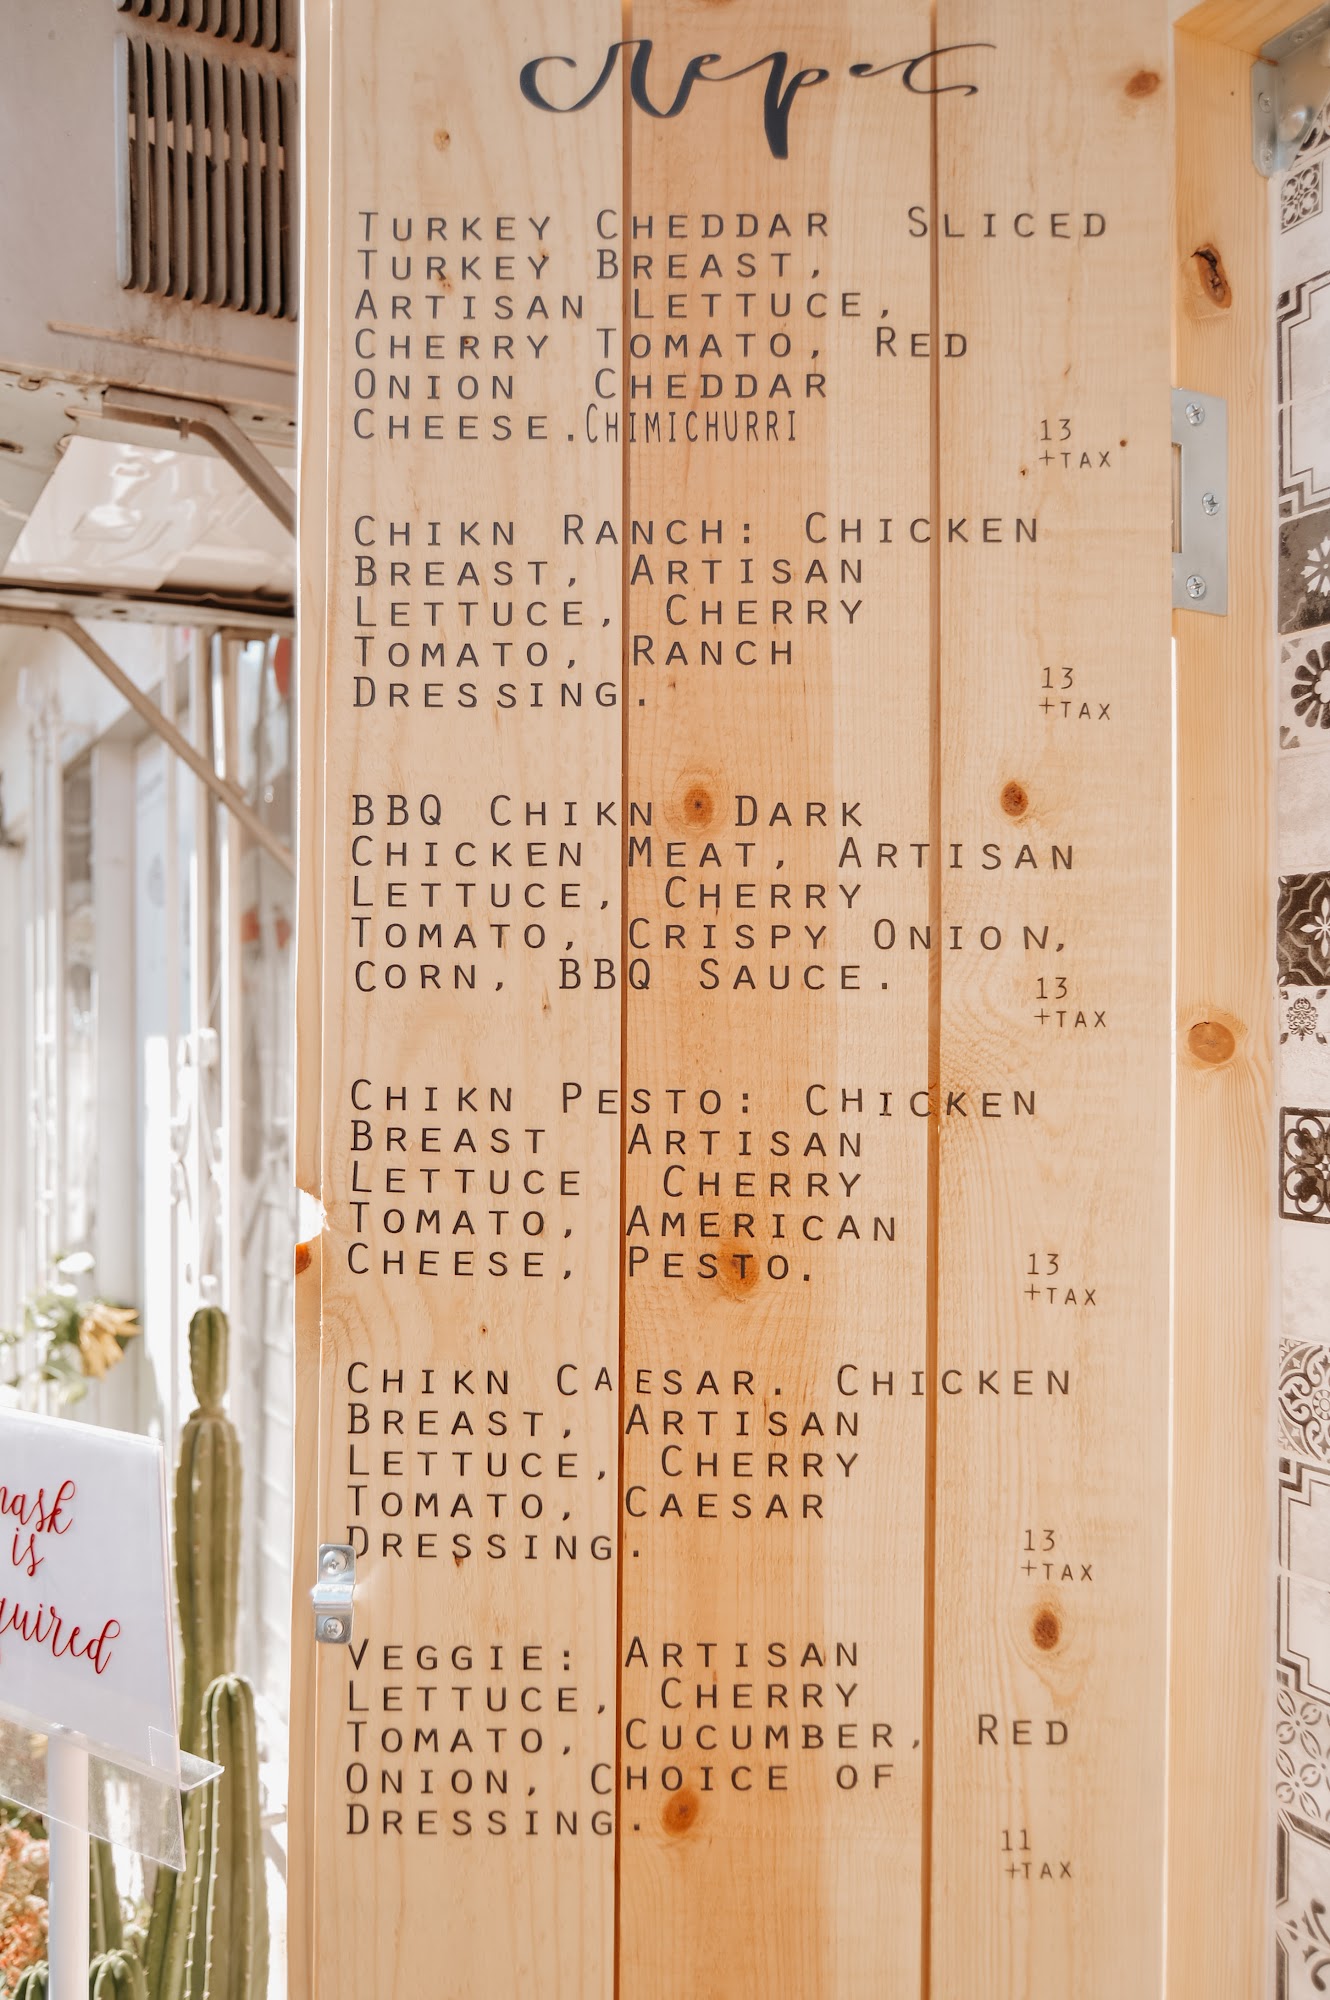 crepes
Turkey Cheddar Sliced
Turkey Breast,
Artisan Lettuce,
Cherry Tomato, Red
Onion Cheddar
Cheese.Chimichurri
13
+TAX
Chikn Ranch: Chicken
Breast, Artisan
Lettuce, Cherry
Tomato, Ranch
Dressing.
13
+TAX
BBQ Chikn Dark
Chicken Meat, Artisan
Lettuce, Cherry
Tomato, Crispy Onion,
corn, BBQ Sauce.
13
+TAX
Chikn Pesto: Chicken
Breast Artisan
Lettuce Cherry
Tomato, American
Cheese, Pesto.
13
+TAX
Chikn Caesar. Chicken
Breast, Artisan
Lettuce, Cherry
Tomato, Caesar
Dressing.
13
+TAX
Veggie: Artisan
Lettuce, Cherry
Tomato, Cucumber, Red
Onion, Choice of
Dressing.
11
+TAX
mask
is
quired